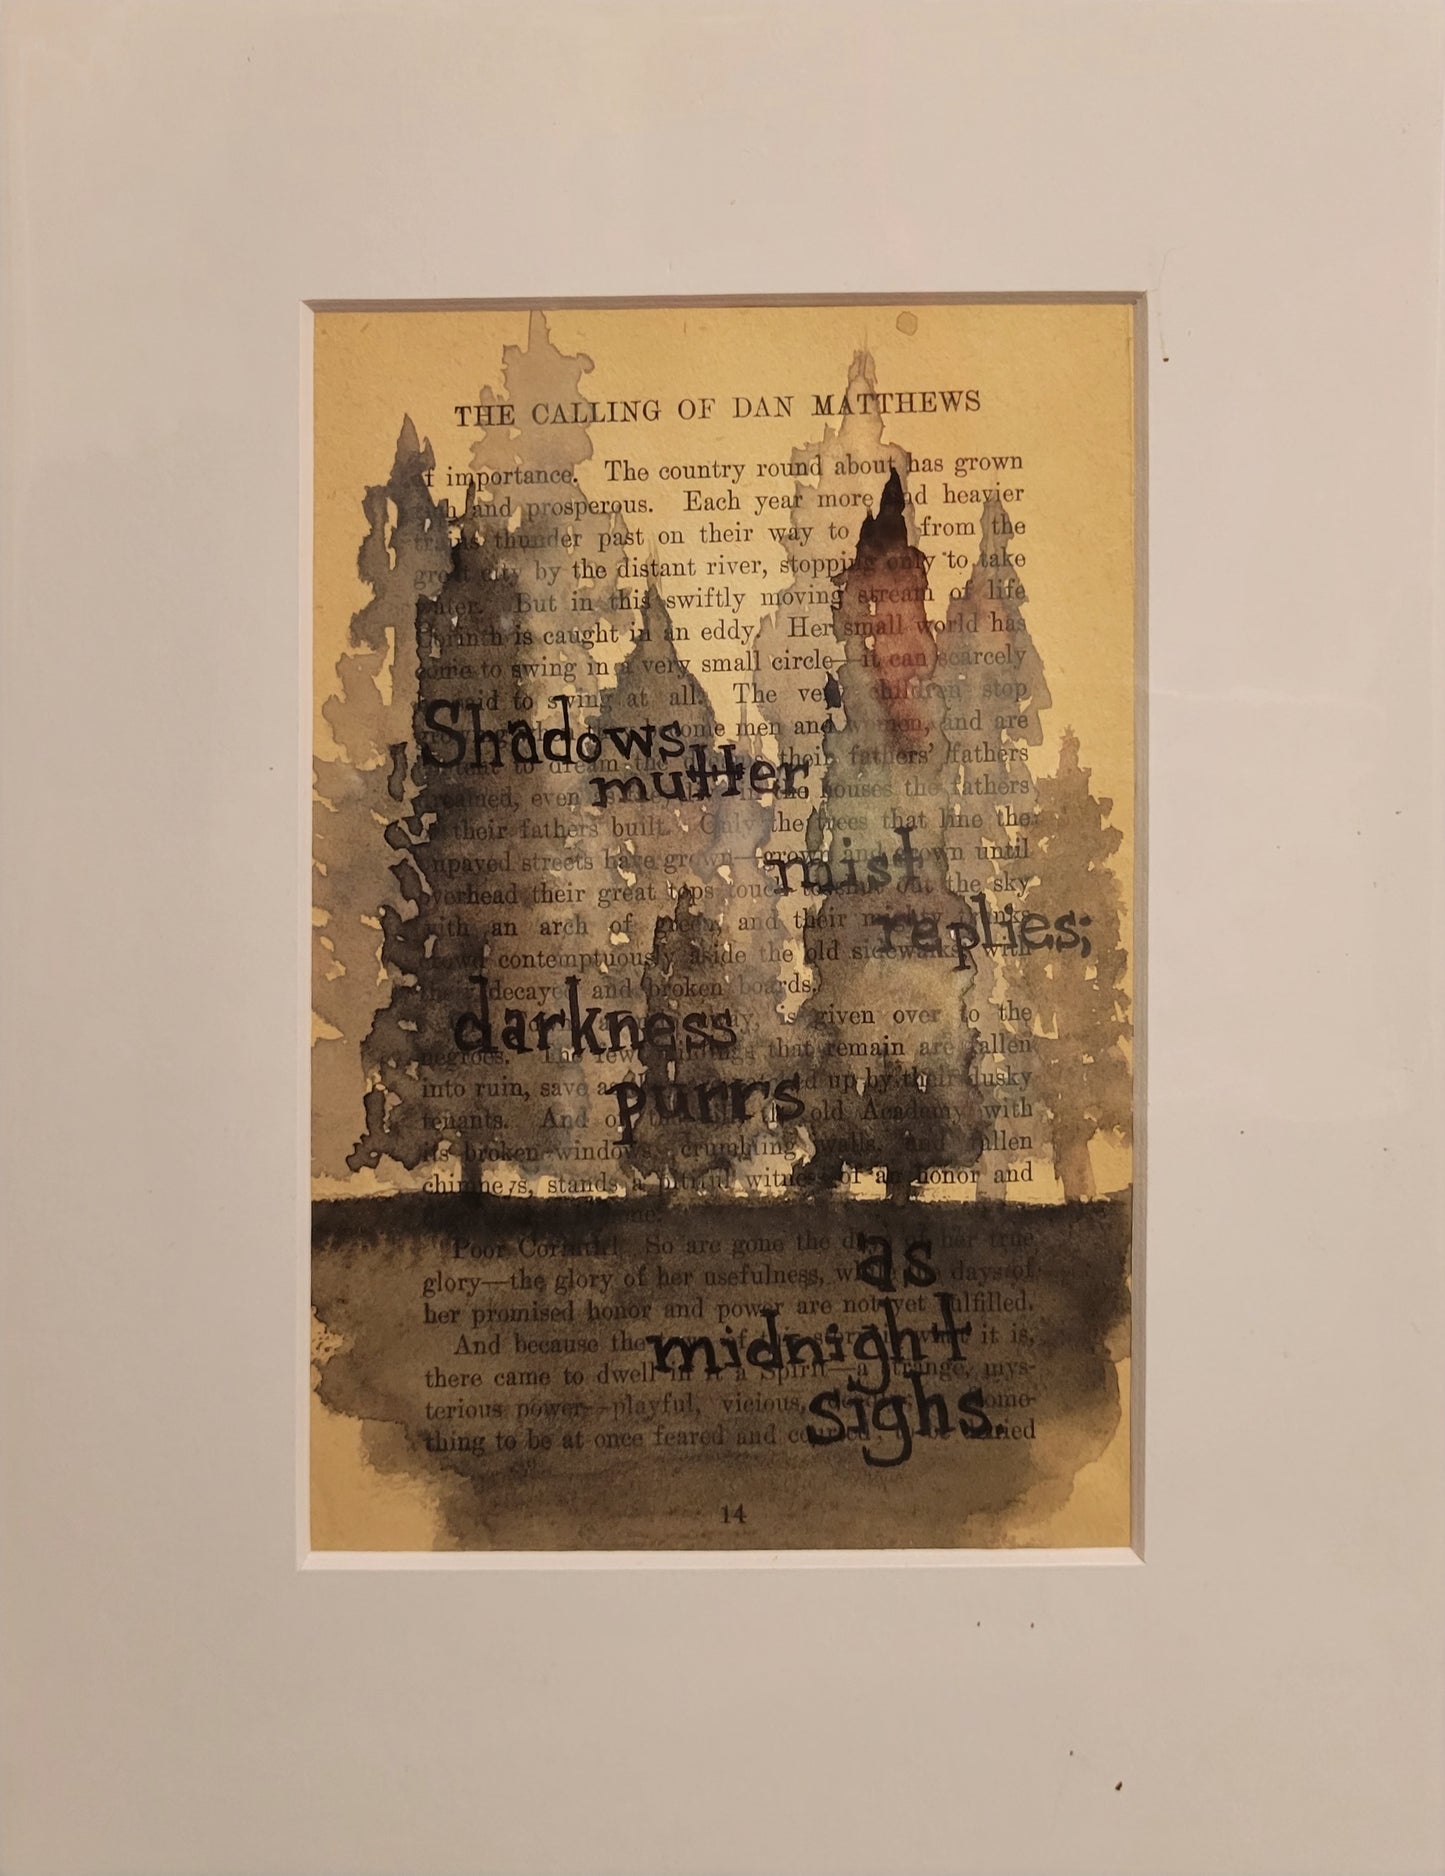 THE CALLING OF DAN MATTHEWS
of importance. The country round about has grown
rich and prosperous. Each year more and heavier
trains thunder past on their way to from the
great city by the distant river, stopping only to take
water. But in this swiftly moving stream of life
Corinth is caught in an eddy. Her small world has
come to swing in a very small circle—it can scarcely
be said to swing at all. The very children stop
growing some men and women, and are
Shadows
content to dream the their fathers' fathers
mutter
dreamed, even in the houses the fathers
of their fathers built. Only the trees that line the
unpaved streets have grown—grown and grown until
mist
overhead their great tops touch to shut out the sky
with an arch of green, and their mighty trunks
replies;
crowd contemptuously aside the old sidewalks, with
their decayed and broken boards.
darkness
is given over to the
negroes. The few that remain are fallen
into ruin, save as up by their dusky
purrs
tenants. And on the old Academy with
its broken windows, crumbling walls, and fallen
chimneys, stands a pitiful witness of an honor and
gone.
Poor Corinth! So are gone the days of her true
as
glory—the glory of her usefulness, while the days of
her promised honor and power are not yet fulfilled.
And because the town of this story is what it is,
midnight
there came to dwell in it a Spirit—a strange, mys-
terious power—playful, vicious, some-
sighs.
thing to be at once feared and courted, to be denied
14